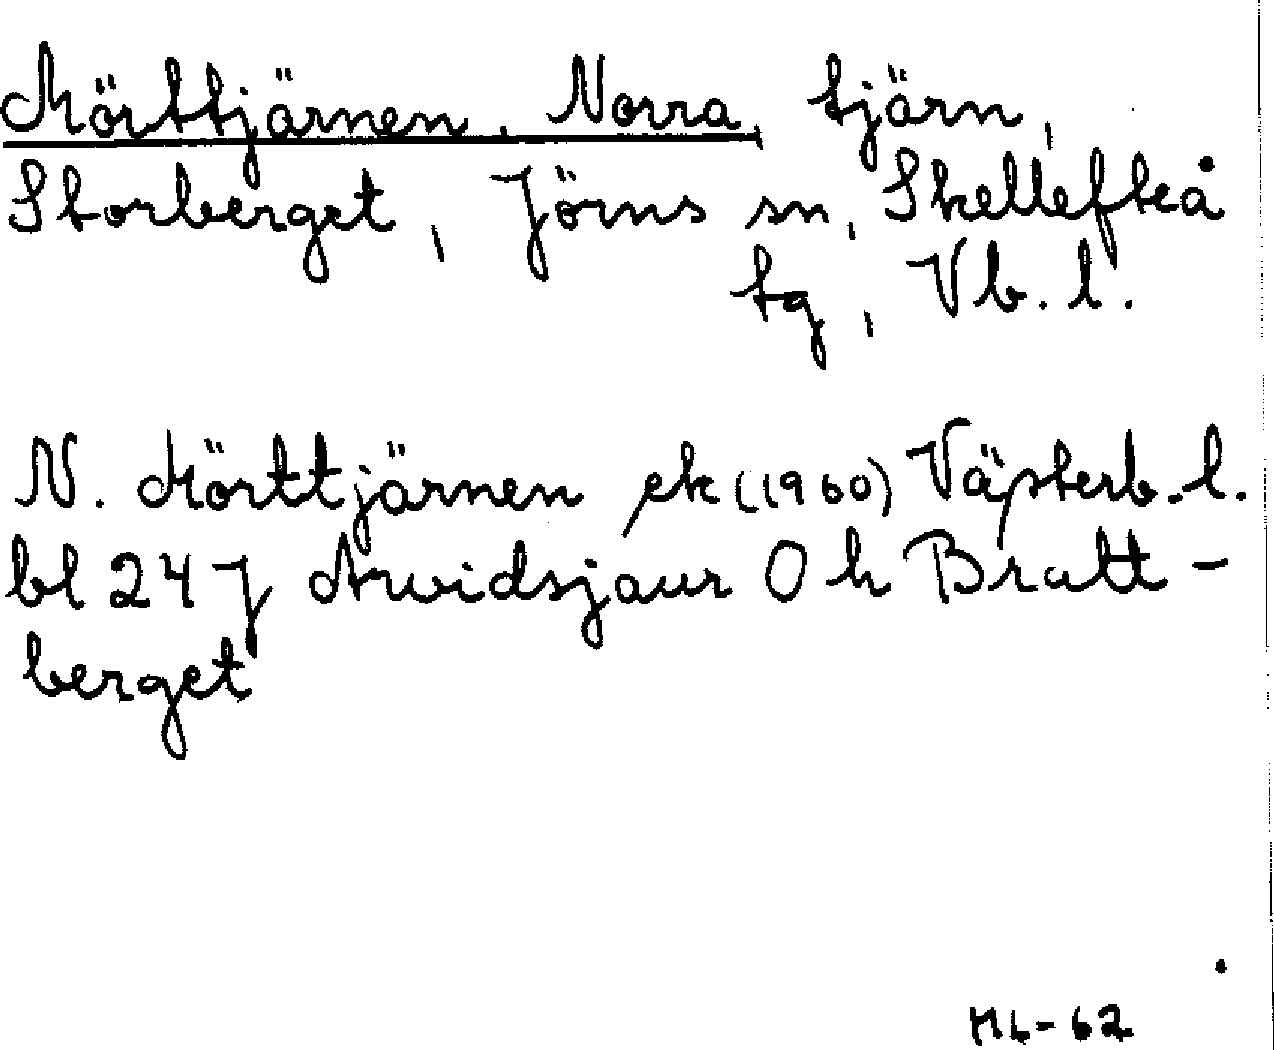 Mörttjärnen, Norra, tjärn,
Storberget, Jörns sn, Skellefteå
tg, Vb. l.
N. Mörttjärnen ek (1960) Västerb. l.
bl 24 J Arvidsjaur O h Bratt-
berget
ML-62